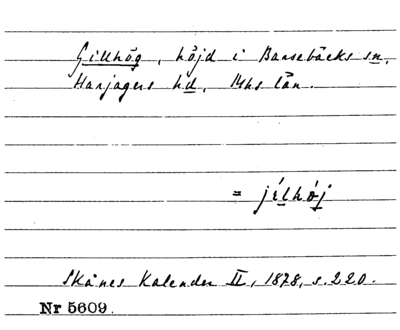 Gillhög, höjd i Barsebäcks sn,
Harjagers hd, Mhs län.
= jílhǿj
Skånes Kalender II, 1878, s. 220.
Nr 5609.